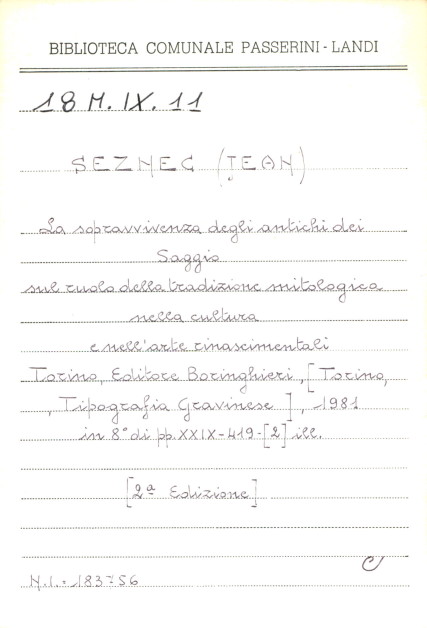 BIBLIOTECA COMUNALE PASSERINI - LANDI
18 M. IX. 11
SEZNEC (JEAN)
La sopravvivenza degli antichi dei
Saggio
sul ruolo della tradizione mitologica
nella cultura
e nell'arte rinascimentali
Torino, Editore Boringhieri, [Torino,
, Tipografia Gravinese], 1981
in 8° di pp. XXIX-419-[2] ill.
[2ª Edizione]
C
N.I.= 183756